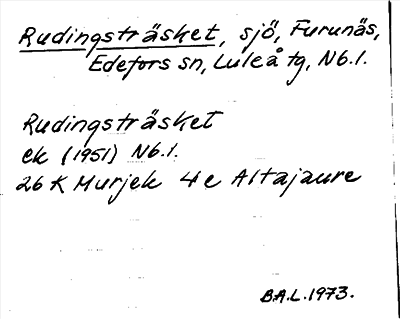 Rudingsträsket, sjö, Furunäs,
Edefors sn, Luleå tg, Nb.l.
Rudingsträsket
ek (1951) Nb.l.
26 K Murjek 4e Altajaure
B.A.L. 1973.